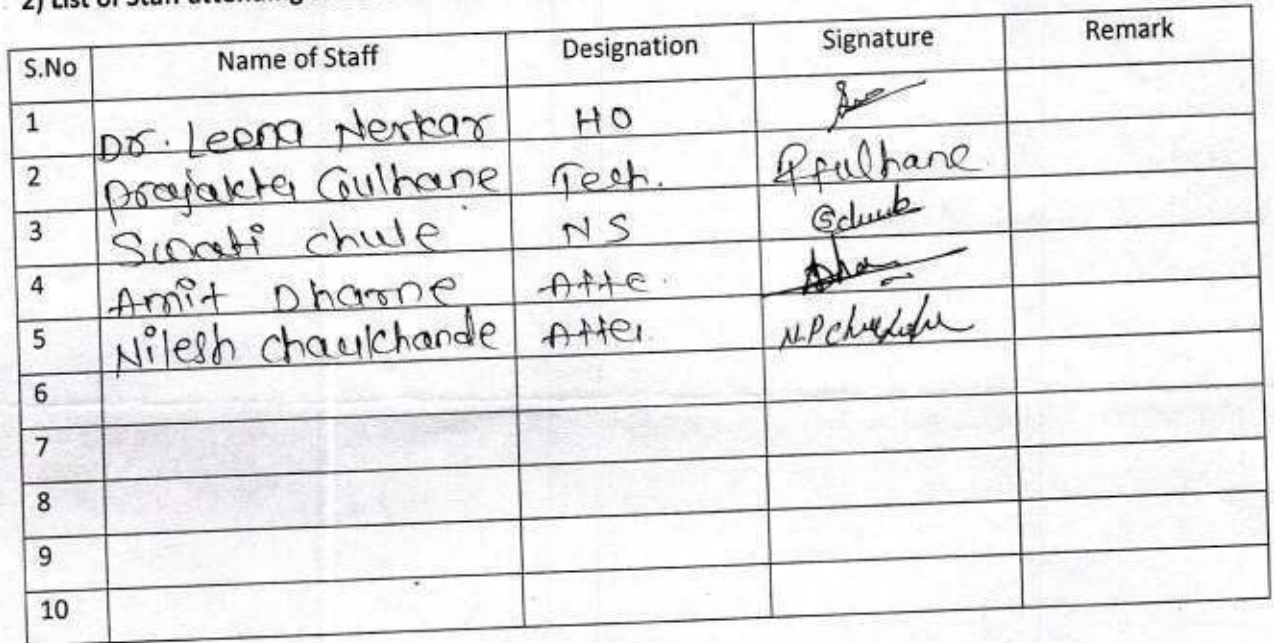 2) List of Staff attending
S.No Name of Staff Designation Signature Remark
1 Dr. Leena Nerkar HO
2 Prajakta Gulhane Tech. Pfulhane
3 Swati chule NS
4 Amit Dharne Atte.
5 Nilesh Chaulkhande Atte. N.P
6
7
8
9
10